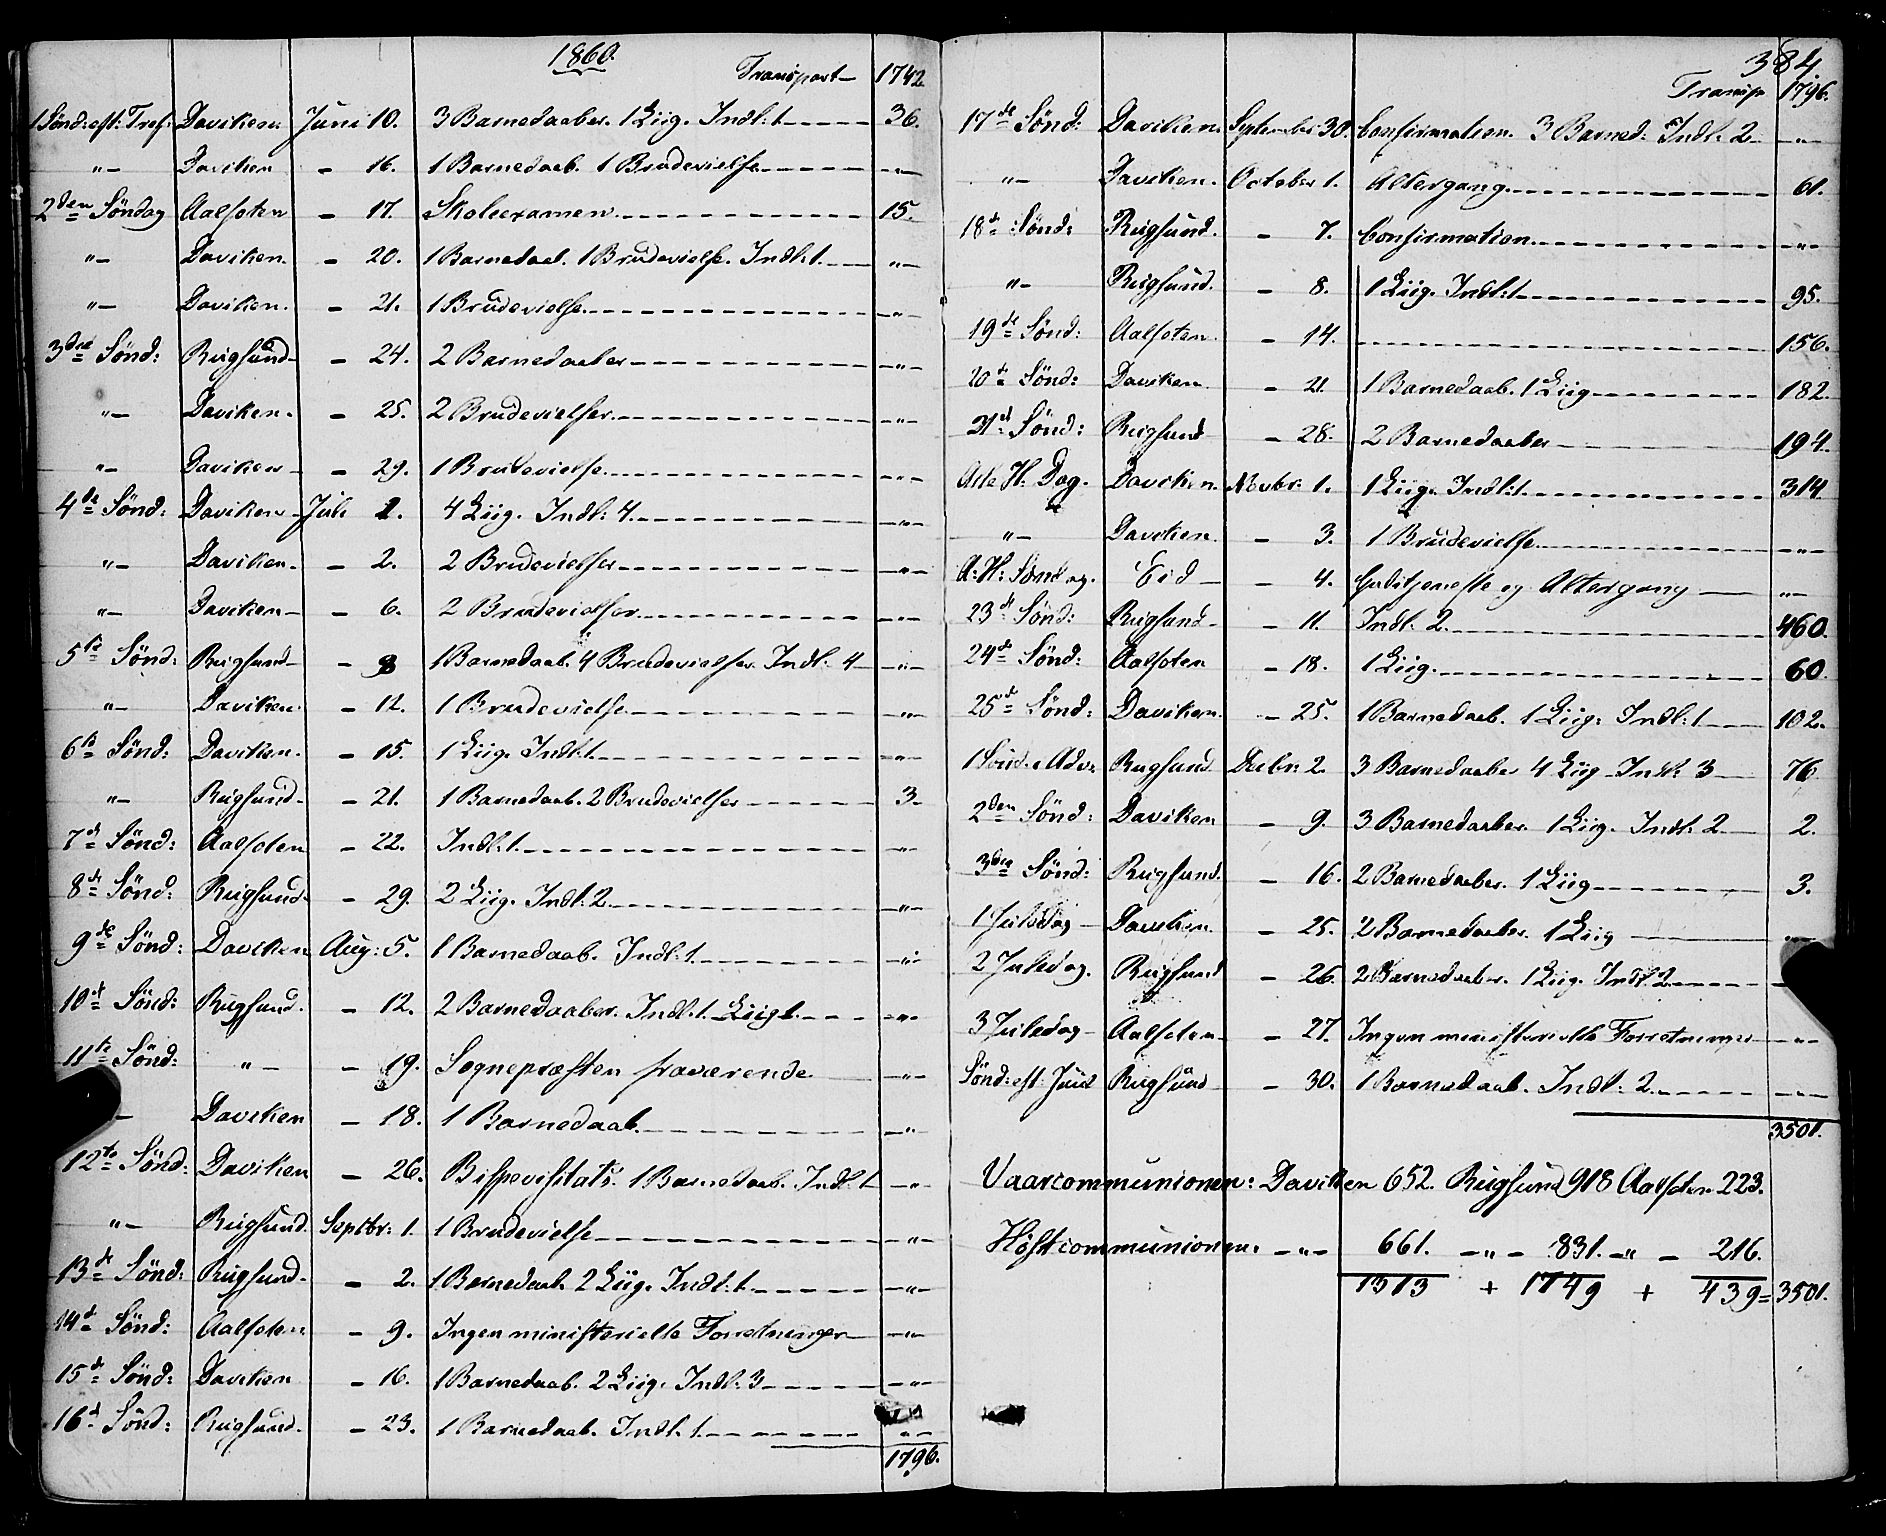 1860.
Transport 1742
1 Sönd: eft: Tref: Daviken Juni 10. 3 Barnedaaber. 1 Liig. Indl: 1 36.
"– Daviken – 16. 1 Barnedaab. 1 Brudevielse –"–
2den Söndag Aalfoten – 17. Skoleexamen 15.
"– Daviken. – 20. 1 Barnedaab. 1 Brudevielse. Indl: 1. –"–
"– Daviken. – 21. 1 Brudevielse –"–
3die Sönd: Rugsund – 24. 2 Barnedaaber –"–
"– Daviken. – 25. 2 Brudevielser –"–
"– Daviken – 29. 1 Brudevielse –"–
4de Sönd: Daviken – Juli 1. 4 Liig. Indl: 4. –"–
"– Daviken – 2. 2 Brudevielser –"–
"– Daviken – 6. 2 Brudevielser –"–
5te Sönd: Rugsund – 8 1 Barnedaab. 4 Brudevielser Indl: 4 –"–
"– Daviken. – 12. 1 Brudevielse –"–
6te Sönd: Daviken. – 15. 1 Liig. Indl: 1. –"–
"– Rugsund. – 21. 1 Barnedaab. 2 Brudevielser 3.
7de Sönd: Aalfoten – 22. Indl: 1. –"–
8de Sönd: Rugsund – 29. 2 Liig. Indl: 2. –"–
9de Sönd: Daviken Aug: 5. 1 Barnedaab. Indl: 1. –"–
10de Sönd: Rugsund. – 12. 2 Barnedaaber. Indl: 1. Liig 1. –"–
11te Sönd: "– – 19. Sognepræsten fraværende –"–
– Daviken – 18. 1 Barnedaab. –"–
12te Sönd: Daviken – 26. Bispevisitats. 1 Barnedaab. Indl: 1 –"–
"– Rugsund. Septbr: 1. 1 Brudevielse –"–
13de Sönd: Rugsund. – 2. 1 Barnedaab. 2 Liig. Indl: 1. –"–
14de Sönd: Aalfoten – 9. Ingen ministerielle Forretninger –"–
15de Sönd: Daviken – 16. 1 Barnedaab. 2 Liig. Indl: 3 –"–
16de Sönd: Rugsund. – 23. 1 Barnedaab. Indl: 1. –"–
1796.
384
Transp. 1796.
17de Sönd: Daviken. September 30. Confirmation. 3 Barned: Indl: 2 –"–
"– Daviken. October 1. Altergang. 61.
18de Sönd: Rugsund. – 7. Confirmation. –"–
"– Rugsund. – 8. 1 Liig. Indl: 1 95.
19de Sönd: Aalfoten. – 14. 156.
20de Sönd: Daviken. – 21. 1 Barnedaab. 1 Liig 182.
21de Sönd: Rugsund – 28. 2 Barnedaaber 194.
Alle H: Dag. Daviken. Novbr: 1. 1 Liig. Indl: 1. 314.
"– Daviken. – 3. 1 Brudevielse –"–
A: H: Söndag. Eid – – 4. Gudstjeneste og Altergang "–
23de Sönd: Rugsund – – 11. Indl: 2. 460.
24de Sönd: Aalfoten – 18. 1 Liig. 60.
25de Sönd: Daviken. – 25. 1 Barnedaab. 1 Liig. Indl: 1 102.
1 Sönd. Adv: Rugsund Decbr: 2. 3 Barnedaaber 4 Liig Indl: 3 76
2den Sönd: Daviken – 9. 3 Barnedaaber. 1 Liig. Indl: 2. 2.
3die Sönd: Rugsund. – 16. 2 Barnedaaber. 1 Liig 3.
1 Juledag – Daviken – 25. 2 Barnedaaber. 1 Liig –"–
2 Juledag. Rugsund – 26. 2 Barnedaaber. 1 Liig. Indl: 2.
3 Juledag – Aalfoten – 27. Ingen ministerielle Forretninger –"–
Sönd: eft: Juul Rugsund – 30. 1 Barnedaab. Indl: 2. –"–
3501.
Vaarcommunionen: Daviken 652. Rugsund 918 Aalfoten 223.
Höstcommunionen. –"– 661. –"– 831. –"– 216.
1313 + 1749 + 439 = 3501.